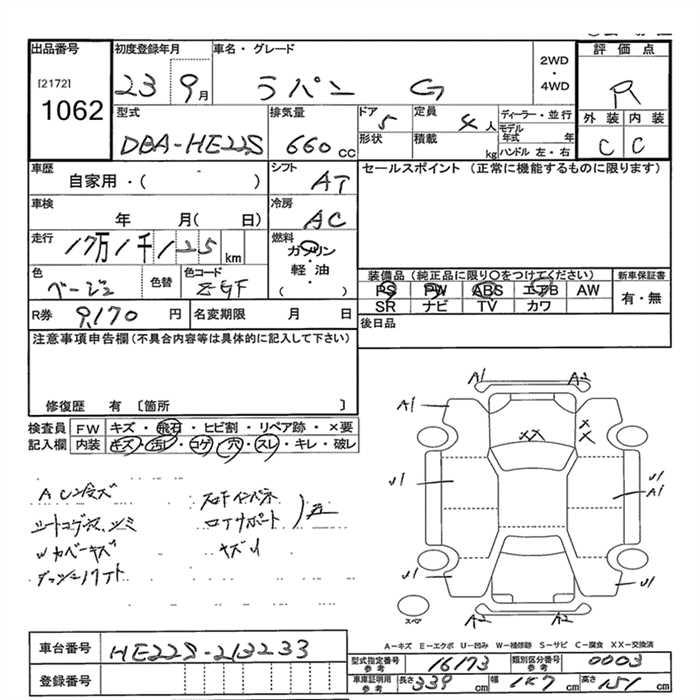 出品番号 初度登録年月 車名・グレード 評価点
[2172] 23 9月 ラパン G 2WD・4WD R
1062
型式 排気量 ドア 5 定員 4人 ディーラー・並行 外装 内装
DBA-HE22S 660cc 形状 積載 kg モデル年式 年 C C
ハンドル 左・右
車歴 自家用・( ) シフト AT セールスポイント (正常に機能するものに限ります)
車検 年 月( 日) 冷房 AC
走行 17万1千125km 燃料 ガソリン・軽油( )
色 ベージュ 色替 色コード ZGF
装備品(純正品に限り○をつけてください) 新車保証書
PS PW ABS エアB AW 有・無
SR ナビ TV カワ
R券 9,170円 名変期限 月 日 後日品
注意事項申告欄(不具合内容等は具体的に記入して下さい)
修復歴 有 〔箇所 〕
検査員 FW キズ・飛石・ヒビ割・リペア跡・×要
記入欄 内装 キズ・汚レ・コゲ・穴・スレ・キレ・破レ
A1 A2
A1 XX XX
U1 U1 A1
U1 U1
スペア A2 A2
A−キズ E−エクボ U−凹み W−補修跡 S−サビ C−腐食 XX−交換済
車台番号 HE22S-213233
登録番号
型式指定番号 参考 16173 類別区分番号 参考 0003
車庫証明用 参考 長さ 339cm 幅 147cm 高さ 151cm